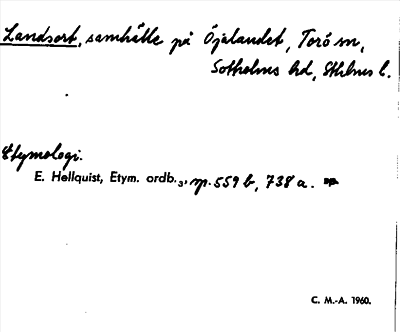 Landsort, samhälle på Öjalandet, Torö sn,
Sotholms hd, Sthlms l.
Etymologi.
E. Hellquist, Etym. ordb.3, sp. 559 b, 738 a.
C. M.-A. 1960.